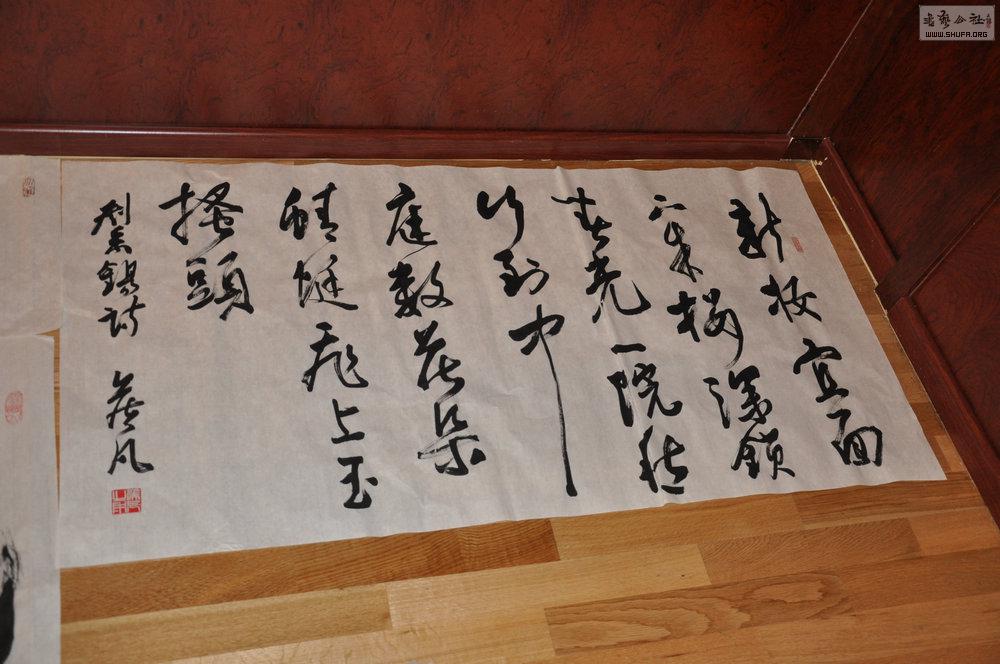 新妝宜面
下朱楼深鎖
春光一院愁
行到中
庭数花朵
蜻蜓飛上玉
搔頭
劉禹錫詩
书艺公社
WWW.SHUFA.ORG